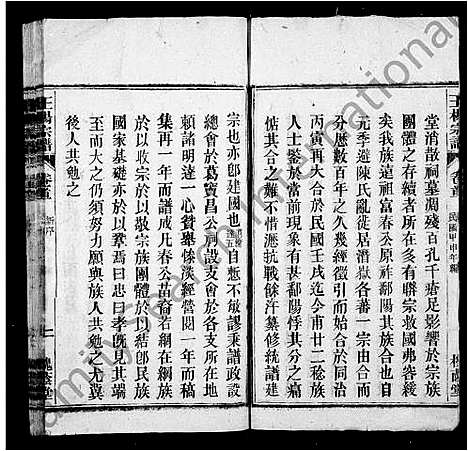 王楊宗譜 卷首 民國甲申年編 槐蔭堂
堂消散祠墓凋殘百孔千瘡足影響於宗族
團體之存續者所在多有聯宗救國弗容緩
矣我族共戴祖富春公原祚鄱陽其族合也自
元季避陳氏亂徙居潛嶽各蕃一宗由合而
分歷數百年之久幾經徵引而始合於前清
丙寅再大合於民國壬戌迄今甫廿二稔族
人士鑒於當前有甚鄱陽悖其分之之易
惟其合之難不惜瀝抗戰餘汴纂修統譜建
宗也亦卽建國也 自慙不敏謬秉譜政設
總會於葛寶昌公 設支會於各支所在地
賴諸明達一心贊襄慘淡經營閱一年而稿
集再一年而譜成凡春公苗裔若綱在網族
於以收宗於以敬宗族團體於以結卽民族
國家基礎亦於以鞏焉曰忠曰孝旣見其端
至而大之仍須努力願與族人共勉之尤冀
後人共勉之
王楊宗譜 卷首 新序 一 槐蔭堂